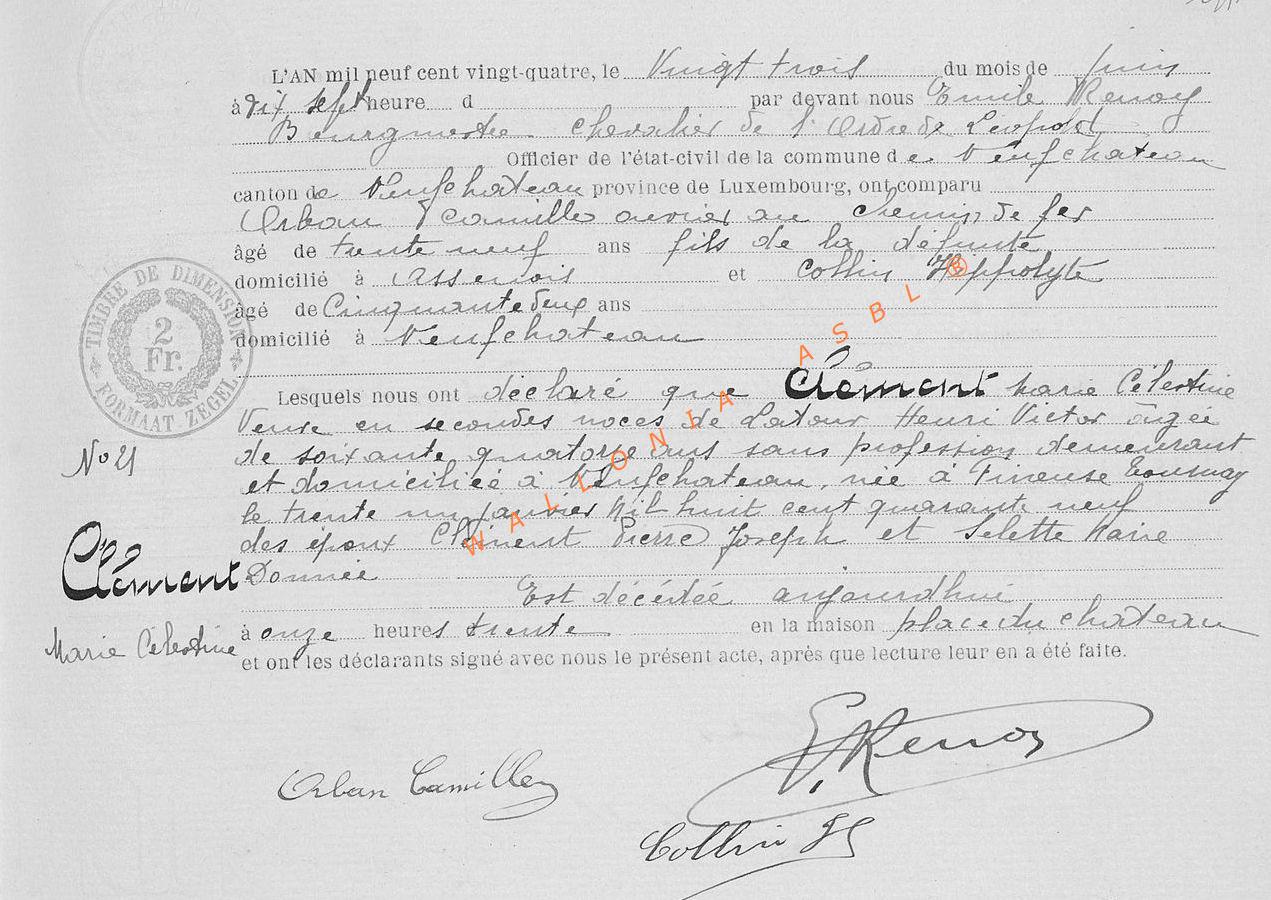 L'AN mil neuf cent vingt-quatre, le Vingt trois du mois de juin
à dix sept heure d par devant nous Emile Renoy
Bourgmestre Chevalier de l'Ordre de Léopold
Officier de l'état-civil de la commune de Neufchateau
canton de Neufchateau province de Luxembourg, ont comparu
Orban Camille ouvrier au chemin de fer
âgé de trente neuf ans fils de la défunte
domicilié à Assenois et Collin Hippolyte
âgé de Cinquante deux ans
domicilié à Neufchateau
TIMBRE DE DIMENSION
2
Fr.
FORMAAT ZEGEL
Lesquels nous ont déclaré que Clément Marie Célestine
Veuve en secondes noces de Latour Henri Victor âgée
de soixante quatorze ans sans profession demeurant
No 21
et domiciliée à Neufchateau, née à Tournay
le trente un janvier Mil huit cent quarante neuf
des époux Clément Pierre Joseph et Marie
Clément
Donnée
Est décédée aujourdhui
Marie Célestine
à onze heures trente en la maison place du chateau
et ont les déclarants signé avec nous le présent acte, après que lecture leur en a été faite.
E. Renoy
Orban Camille
Collin H
WALLONIA ASBL ®